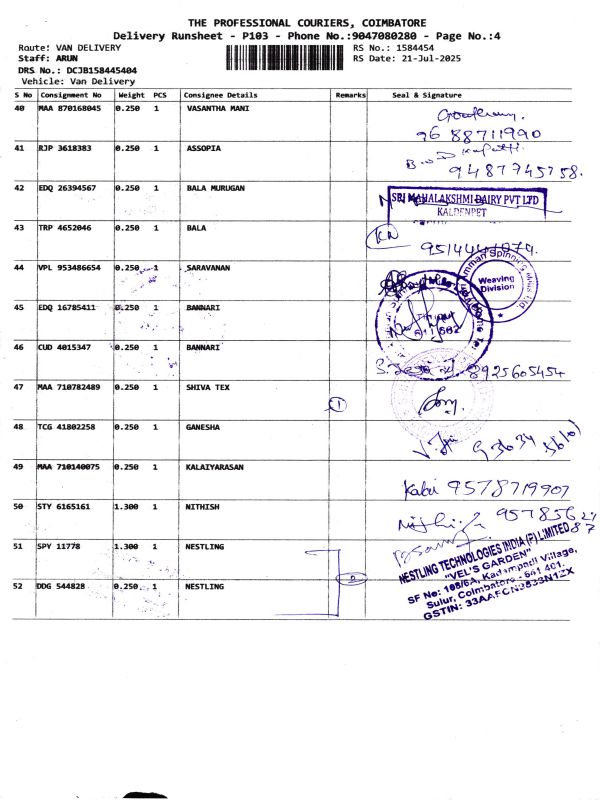 THE PROFESSIONAL COURIERS, COIMBATORE
Delivery Runsheet - P103 - Phone No.:9047080280 - Page No.:4
Route: VAN DELIVERY RS No.: 1584454
Staff: ARUN RS Date: 21-Jul-2025
DRS No.: DCJB158445404
Vehicle: Van Delivery
S No Consignment No Weight PCS Consignee Details Remarks Seal & Signature
40 MAA 870168045 0.250 1 VASANTHA MANI
96 88711990
41 RJP 3618383 0.250 1 ASSOPIA
9487745758.
42 EDQ 26394567 0.250 1 BALA MURUGAN
SRI MAHALAKSHMI DAIRY PVT LTD
KALDENPET
43 TRP 4652046 0.250 1 BALA
44 VPL 953486654 0.250 1 SARAVANAN
Amman Spinning
Weaving
Division
45 EDQ 16785411 0.250 1 BANNARI
46 CUD 4015347 0.250 1 BANNARI
8925605454
47 MAA 710782489 0.250 1 SHIVA TEX
1
48 TCG 41802258 0.250 1 GANESHA
49 MAA 710140075 0.250 1 KALAIYARASAN
Kalai 9578719907
50 STY 6165161 1.300 1 NITHISH
51 SPY 11778 1.300 1 NESTLING
2
52 DDG 544828 0.250 1 NESTLING
NESTLING TECHNOLOGIES INDIA (P) LIMITED
"VEL'S GARDEN"
SF No: 168/6A, Kadampadi Village,
Sulur, Coimbatore - 641 401.
GSTIN: 33AAFCN3633N1ZX